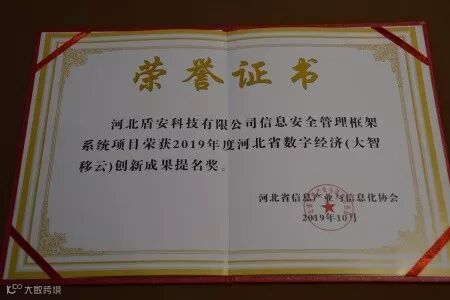 荣誉证书
河北盾安科技有限公司信息安全管理框架
系统项目荣获2019年度河北省数字经济(大智
移云)创新成果提名奖。
河北省信息产业与信息化协会
2019年10月
大数跨境